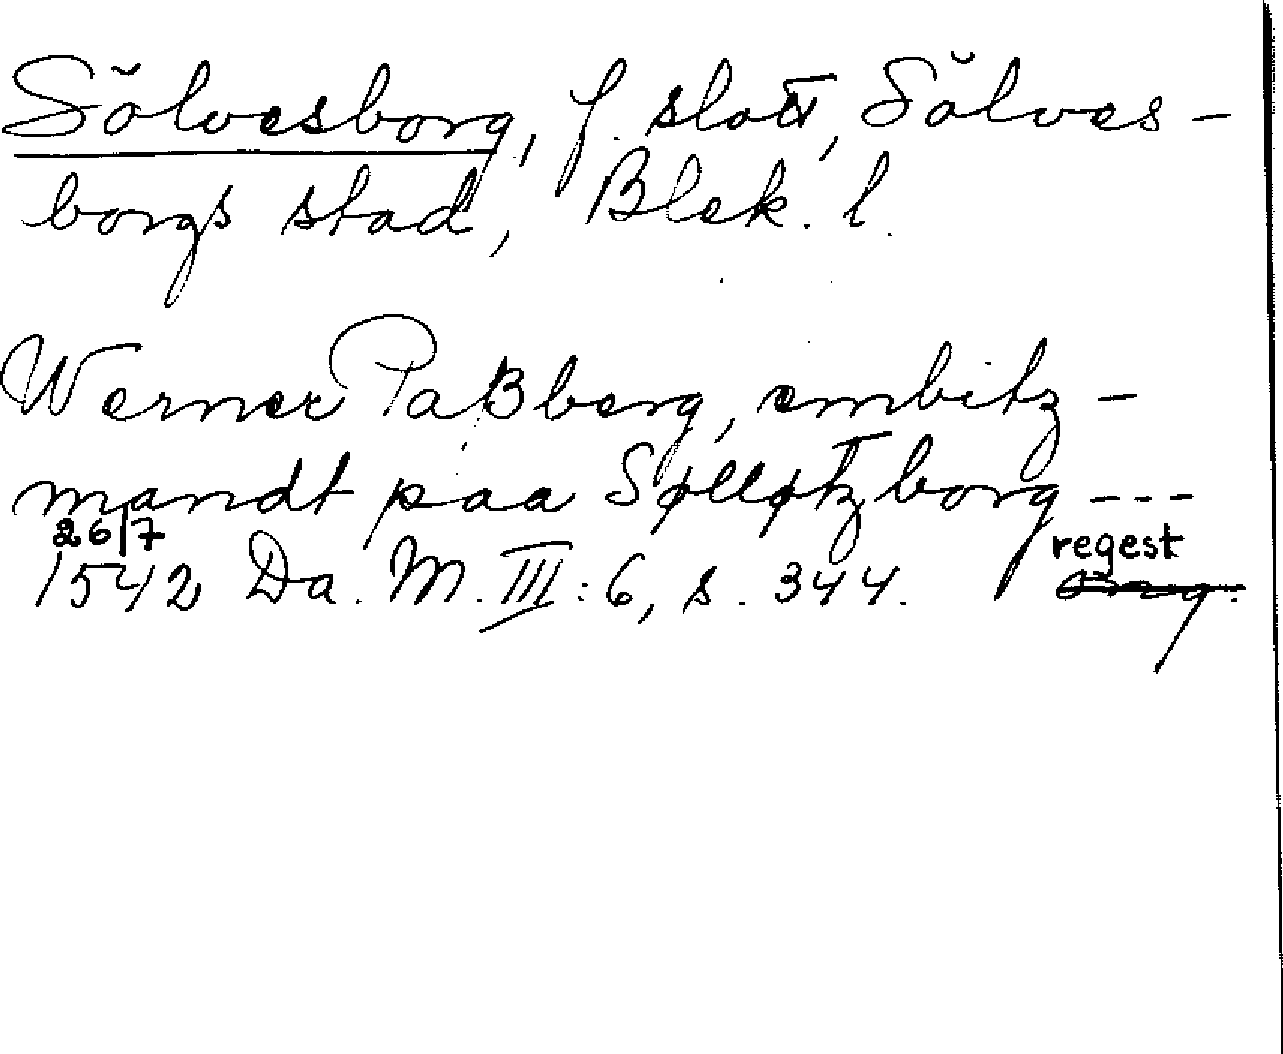 Sölvesborg, f. slott, Sölves-
borgs stad, Blek. l.
Werner Paßberg, embitz-
mandt paa Sølløtzborg ---
26/7 regest
1542 Da. M. III: 6, s. 344. orig.